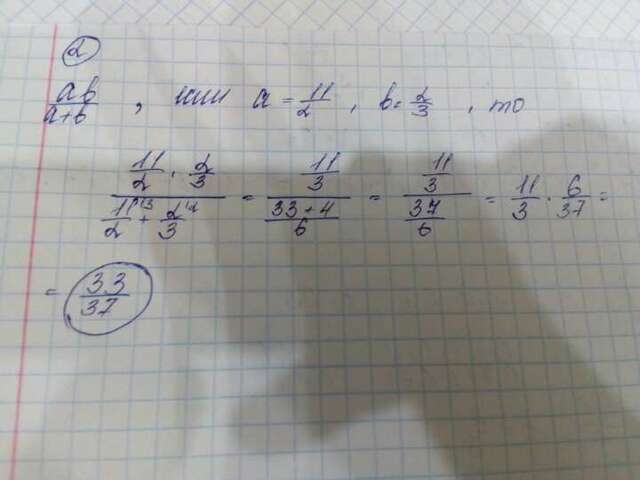 2
ab/(a+b), или a = 11/2, b = 2/3, то
(11/2 · 2/3)/(11/2^(13) + 2/3^(12)) = (11/3)/((33+4)/6) = (11/3)/(37/6) = 11/3 · 6/37 =
= 33/37